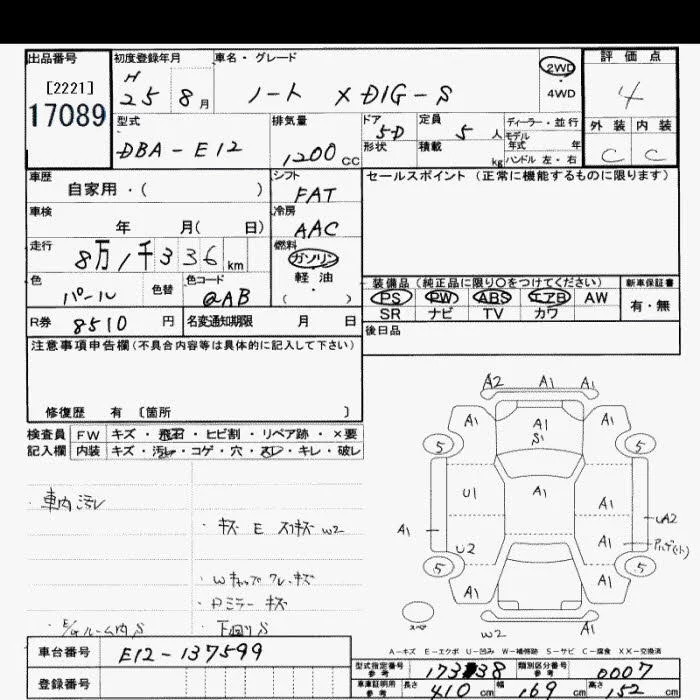 出品番号 初度登録年月 車名・グレード 評価点
[2221] H 25 8月 ノート X DIG-S 2WD 4
17089 4WD
型式 排気量 ドア 5D 定員 5人 ディーラー・並行 外装 内装
DBA-E12 1200cc 形状 積載 kg モデル年式 年 C C
ハンドル 左・右
車歴 シフト セールスポイント（正常に機能するものに限ります）
自家用・（ ） FAT
車検 冷房
年 月（ 日） AAC
走行 燃料
8万1千336km ガソリン
軽油
色 色替 色コード （ ・ ） 装備品（純正品に限り〇をつけてください） 新車保証書
パール QAB PS PW ABS エアB AW 有・無
SR ナビ TV カワ
R券 8510円 名変通知期限 月 日 後日品
注意事項申告欄（不具合内容等は具体的に記入して下さい）
修復歴 有 〔箇所 〕
検査員 FW キズ・飛石・ヒビ割・リペア跡・×要
記入欄 内装 キズ・汚レ・コゲ・穴・スレ・キレ・破レ
・車内汚レ
・キズ E スリキズ W2
・Wキャップ ワレ、キズ
・Dミラー キズ
・E/gルーム内 S ・下回リ S
A2 A1 A1
A1 A1 A1
S1
5 5
U1 A1 A1
A1 UA2
U2 A1
5 5
A1 A1
スペア W2 A1
A－キズ E－エクボ U－凹み W－補修跡 S－サビ C－腐食 XX－交換済
車台番号 E12-137599
登録番号
型式指定番号 参考 17338 類別区分番号 参考 0007
車庫証明用 参考 長さ 410cm 幅 169cm 高さ 152cm